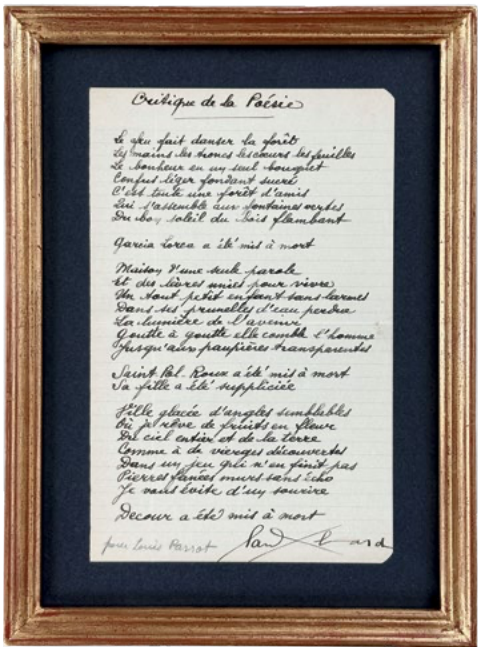 Critique de la Poésie
Le feu fait danser la forêt
Les mains les troncs les cœurs les feuilles
Le bonheur en un seul bouquet
Confus léger fondant sucré
C'est toute une forêt d'amis
Qui s'assemble aux fontaines vertes
Du bon soleil du bois flambant
Garcia Lorca a été mis à mort
Maison d'une seule parole
Et des lèvres unies pour vivre
Un tout petit enfant sans larmes
Dans ses prunelles d'eau perdue
La lumière de l'avenir
Goutte à goutte elle comble l'homme
Jusqu'aux paupières transparentes
Saint-Pol-Roux a été mis à mort
Sa fille a été suppliciée
Ville glacée d'angles semblables
Où je rêve de fruits en fleur
Du ciel entier et de la terre
Comme à de vierges découvertes
Dans un jeu qui n'en finit pas
Pierres fanées murs sans écho
Je vous évite d'un sourire
Decour a été mis à mort
pour Louis Parrot
Paul Eluard